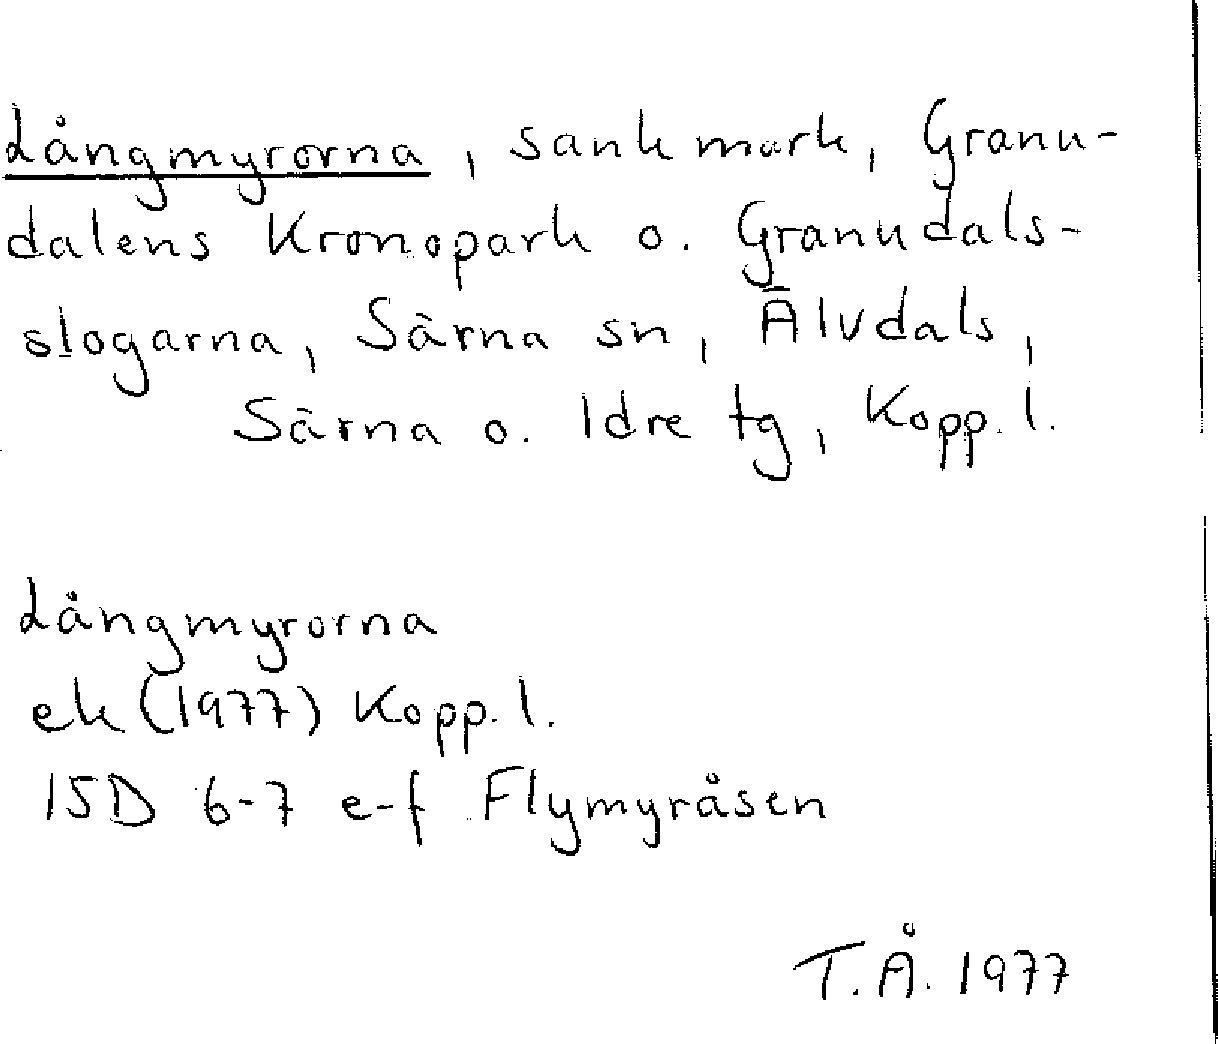 Långmyrorna, sankmark, Granu-
dalens Kronopark o. Granudals-
slogarna, Särna sn, Älvdals,
Särna o. Idre tg, Kopp. l.
Långmyrorna
ek (1977) Kopp. l.
15D 6-7 e-f Flymyråsen
T.Å. 1977